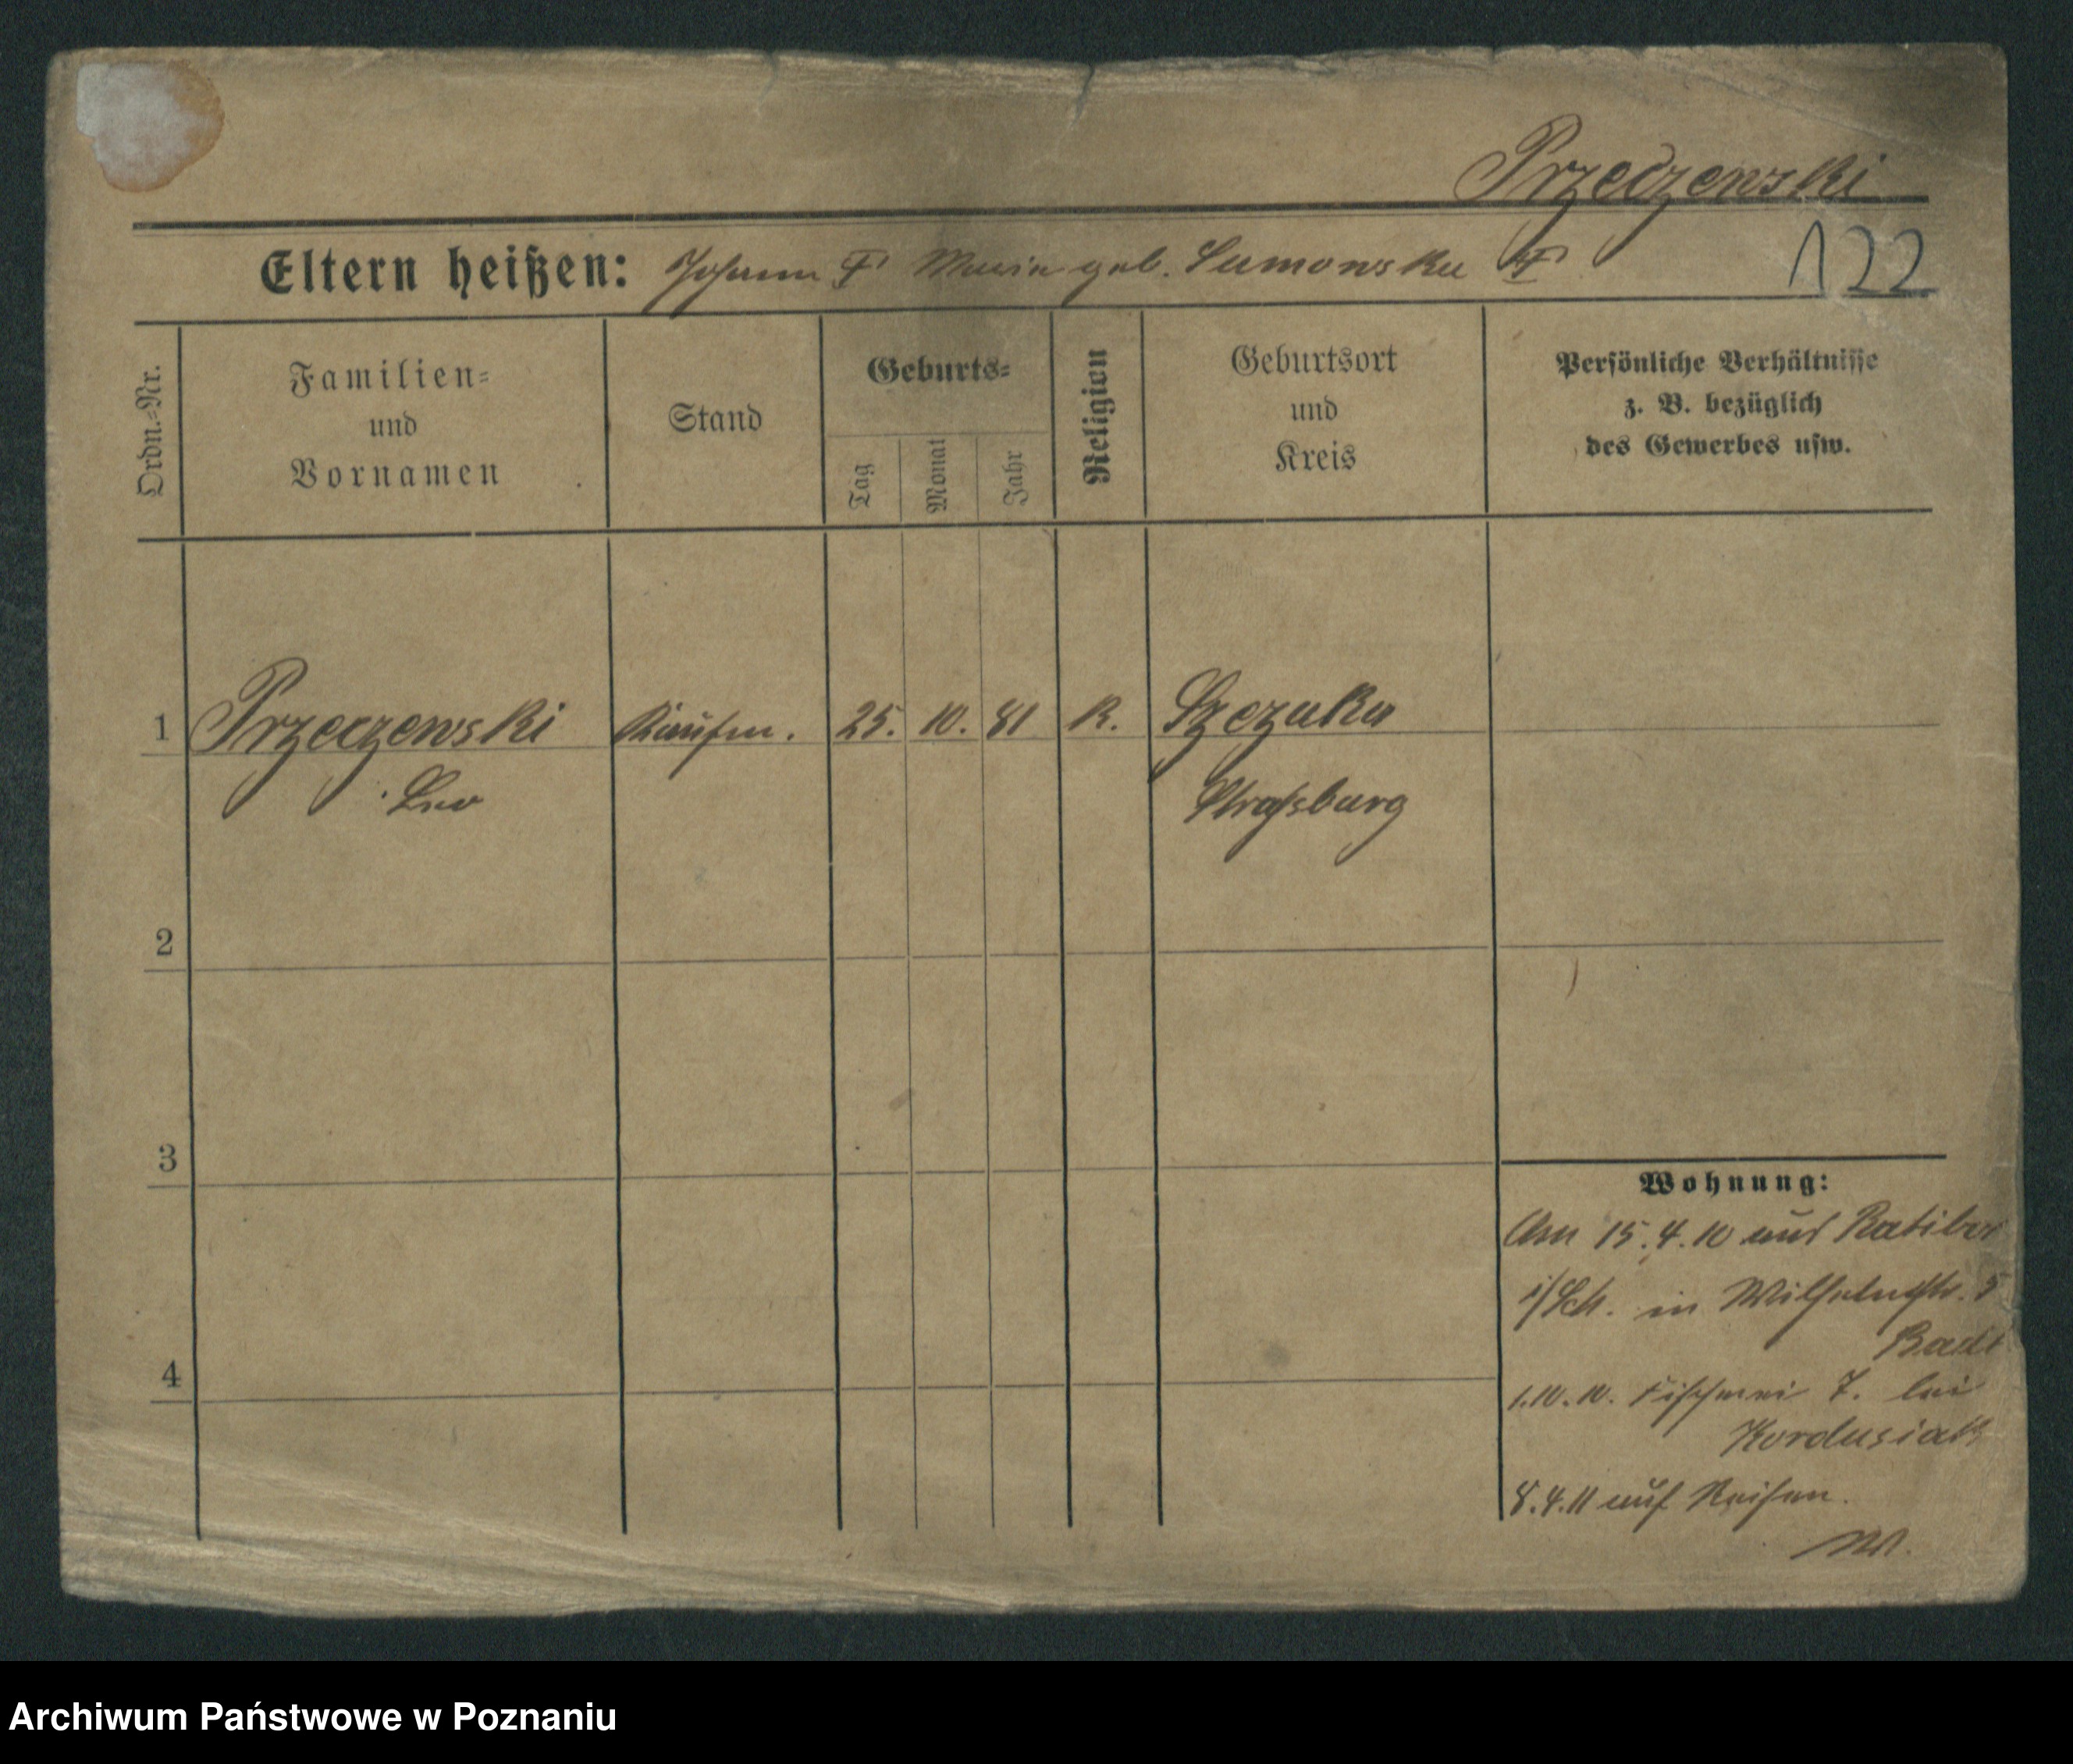 Przeczewski
Eltern heißen: Johann † Marie geb. Sumowska †
122
Ordn.-Nr.
Familien-
und
Vornamen
Stand
Geburts-
Tag
Monat
Jahr
Religion
Geburtsort
und
Kreis
Persönliche Verhältnisse
z. B. bezüglich
des Gewerbes usw.
1 Przeczewski Kaufm. 25. 10. 81 K. Szczuka
Leo Straßburg
2
3
4
Wohnung:
Am 15.4.10 aus Ratibor
i/Sch. in Wilhelmstr. 5
Badt
1.10.10. Fischerei 7. bei
Kordusiak
8.4.11 auf Reisen.
W.
Archiwum Państwowe w Poznaniu